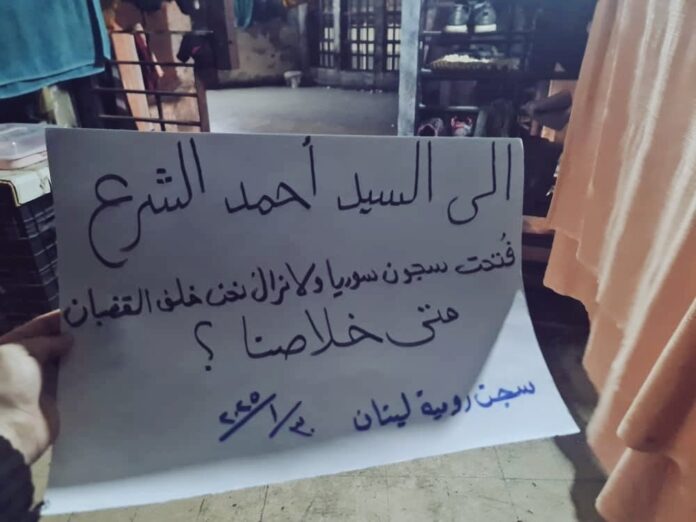 الى السيد أحمد الشرع
فُتحت سجون سوريا ولا نزال نحن خلف القضبان
متى خلاصنا ؟
سجن رومية لبنان ٣٠/١/٢٠٢٥